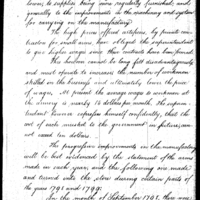 lower, to supplies being more regularly furnished, and
generally to the improvement in the machinery and system
for carrying on the manufactory.
The high price offered artificers, by private con-
tractors for small arms, have obliged the superintendent
to give higher wages since their contracts have been formed.
This however cannot be long felt disadvantageously
and must operate to increase the number of workmen
skilled in the business and ultimately lower the price
of wages. At present the average wages to workmen at
the armory is nearly 18 dollars per month. The superin
tendent however expresses himself confidently, that the
cost of each musket to the government in future, will
not exceed ten dollars.
The progressive improvements in the manufactory
will be best evidenced by the statement of the arms
made in each year, and the following one made
and turned into the store during certain parts of
the year 1798 and 1799.
In the month of September 1798, there were